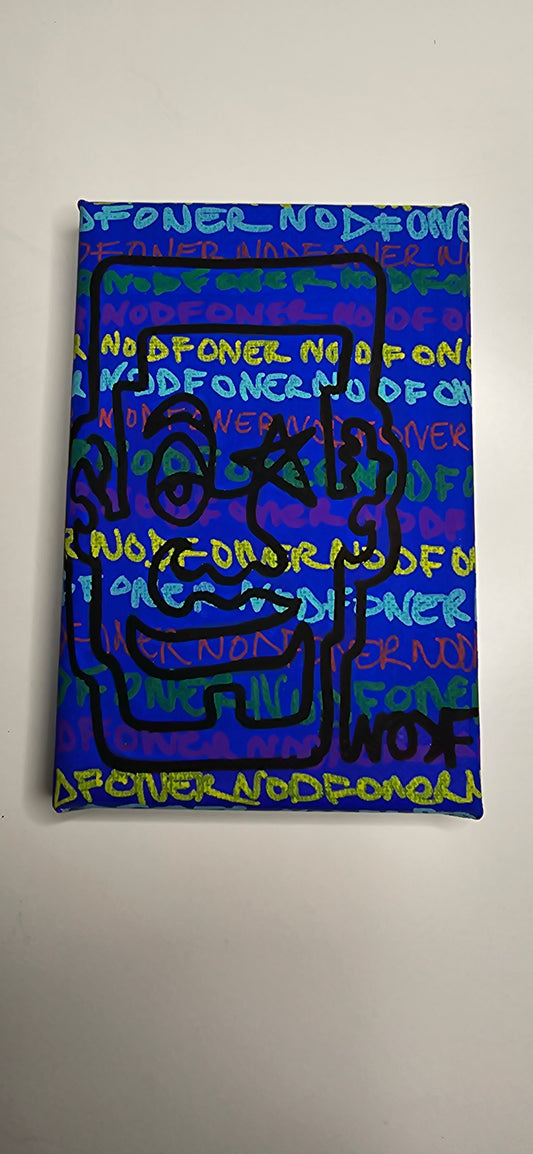 DFONER NODFONE
DFONER NODFONER NO
NODFONER NODF
DFONER NODFO
ER NODFONER NODFON
R NODFONER NODFON
NODFONER NODFONER
NODFONER NODF
FONER NODF
R NODFONER NODFO
DFONER NODFONER
DFONER NODFONER NOD
DFONER NODFONE
DFONER
WOKF
DFONER NODFONORN